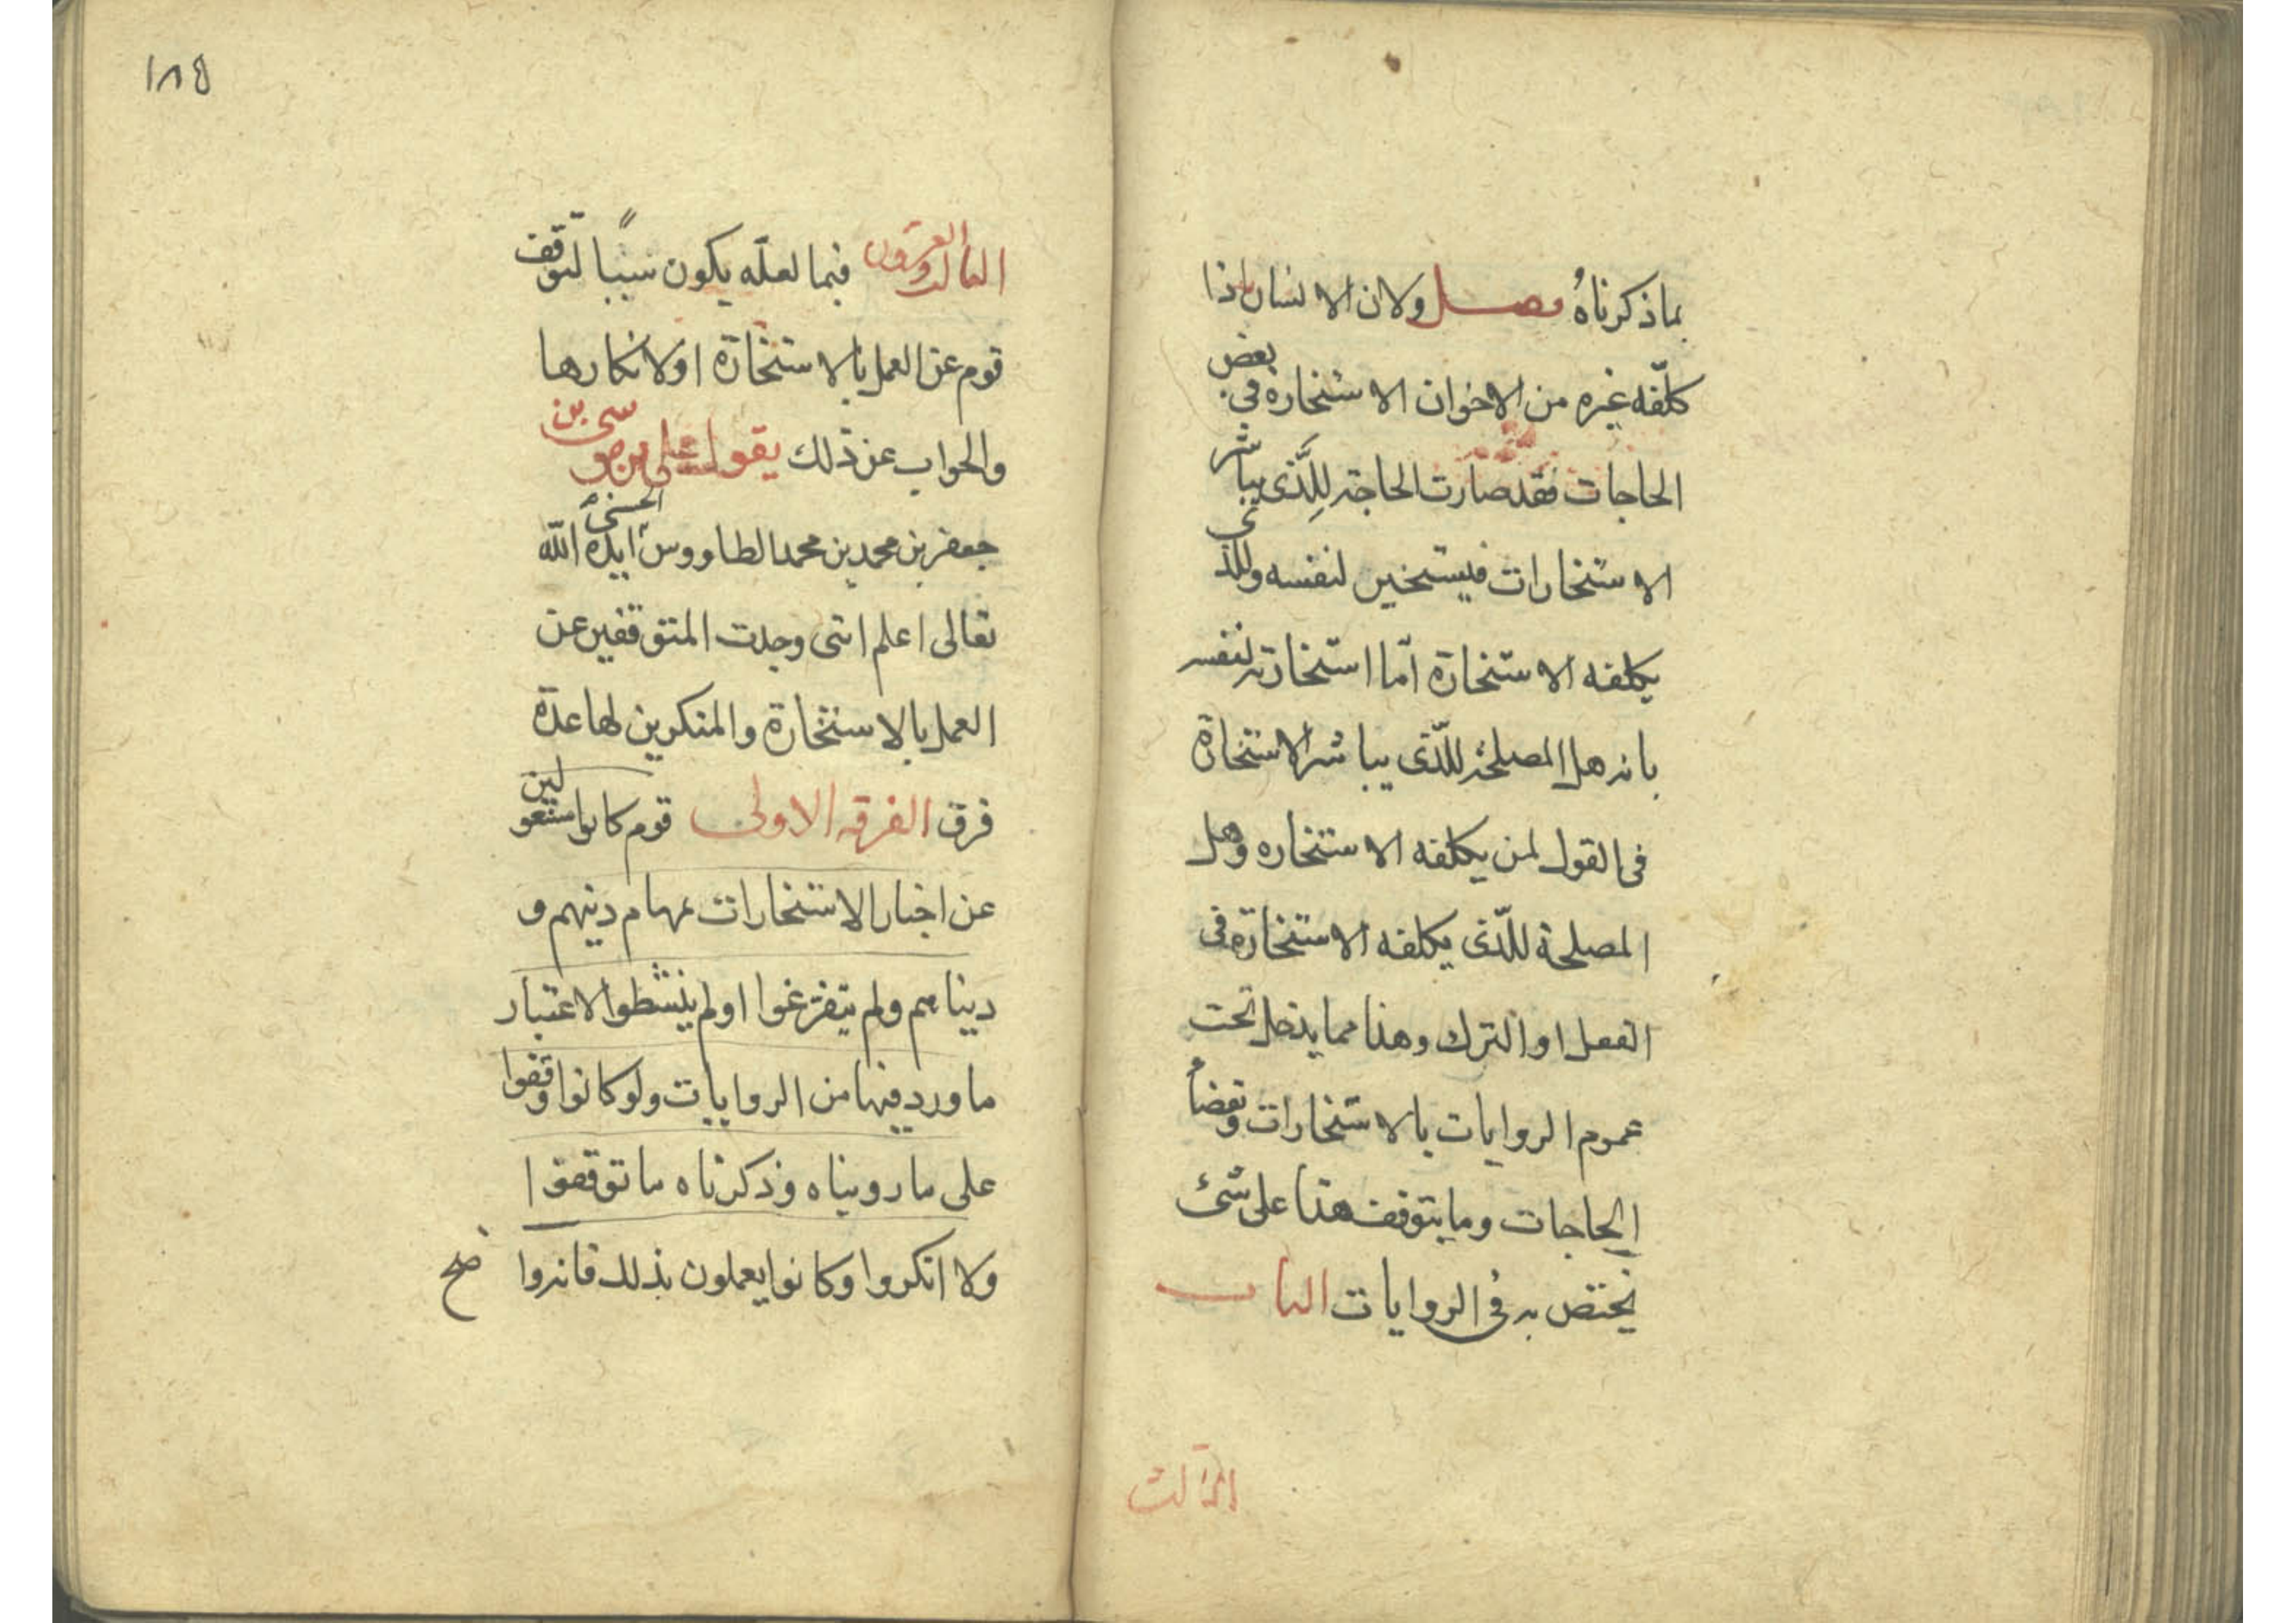 بما ذكرناه فصل ولان الانسان اذا
كلّفه غيره من الاخوان الاستخارة في بعض
الحاجات فقد صارت الحاجة للّذي يباشر
الاستخارات فيستخير لنفسه وللذي
يكلفه الاستخارة امّا استخارته لنفسه
بانه هل المصلحة للّذي يباشر الاستخارة
في القول لمن يكلفه الاستخاره وهل
المصلحة للّذي يكلفه الاستخارة في
الفعل او الترك وهذا مما يدخل تحت
عموم الروايات بالاستخارات وبقضاء
الحاجات وما يتوقف هذا على شئ
يختص به في الروايات الباب
الثالث
١٨٥
الثالث والعشرون فيما لعلّه يكون سببًا لتوقف
قوم عن العمل بالاستخارة او لانكارها
والجواب عن ذلك يقول على بن موسى بن
جعفر بن محمد بن محمد الطاووس الحسنى ايده الله
تعالى اعلم انني وجدت المتوقفين عن
العمل بالاستخارة والمنكرين لها عدة
فرق الفرقه الاولى قوم كانوا مشغولين
عن اخبار الاستخارات بمهام دينهم و
دنياهم ولم يتفرغوا او لم ينشطوا لاعتبار
ما ورد فيها من الروايات ولو كانوا وقفوا
على ما رويناه وذكرناه ما توقفوا
ولا انكروا وكانوا يعملون بذلك فانه وا
صح